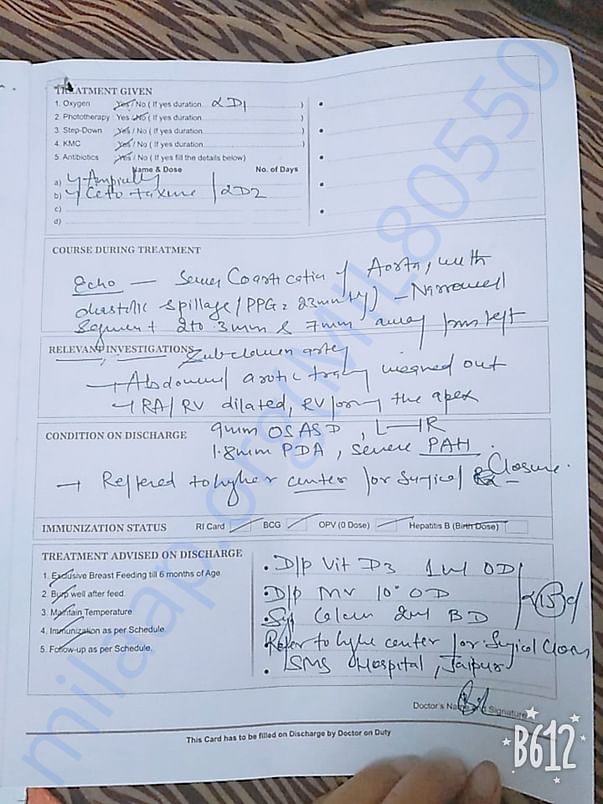 TREATMENT GIVEN
1. Oxygen Yes / No ( If yes duration αD1 )
2. Phototherapy Yes / No ( If yes duration )
3. Step-Down Yes / No ( If yes duration )
4. KMC Yes / No ( If yes duration )
5. Antibiotics Yes / No ( If yes fill the details below)
Name & Dose No. of Days
a)
b) αD2
c)
d)
COURSE DURING TREATMENT
Echo — Severe Coarctation of Aorta, with
diastolic spillage / PPG = 23mmHg) – Narrowed
Segment 2 to 3mm & 7mm away from left
RELEVANT INVESTIGATIONS Subclavian artery
→ Abdominal aortic
→ RA/RV dilated, RV forming the apex
CONDITION ON DISCHARGE 9mm OSASD, L→R
1.8mm PDA, severe PAH.
→ Reffered to higher center for Surgical Closure.
IMMUNIZATION STATUS RI Card BCG OPV (0 Dose) Hepatitis B (Birth Dose)
TREATMENT ADVISED ON DISCHARGE
1. Exclusive Breast Feeding till 6 months of Age
2. Burp well after feed.
3. Maintain Temperature
4. Immunization as per Schedule.
5. Follow-up as per Schedule.
• D/p Vit D3 1ml OD
• D/p MV 10° OD
• Syp 2ml BD
Refer to higher center for Surgical Closure
• SMS Hospital, Jaipur
Doctor's Name and Signature
This Card has to be filled on Discharge by Doctor on Duty
B612
milaap.org/MIL80550